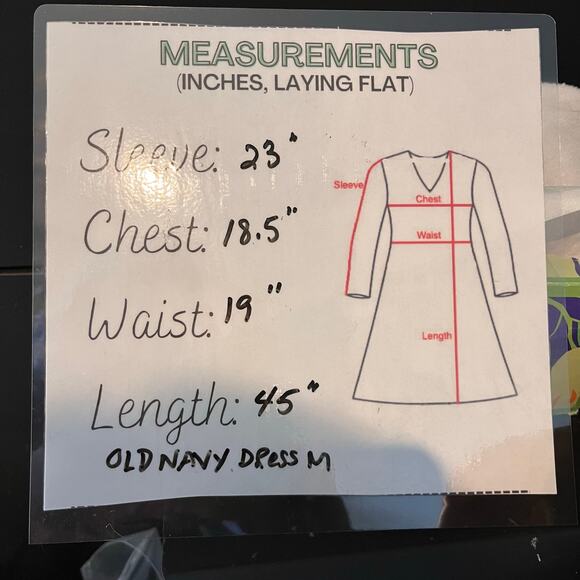 MEASUREMENTS
(INCHES, LAYING FLAT)
Sleeve: 23"
Chest: 18.5"
Waist: 19"
Length: 45"
OLD NAVY DRESS M
Sleeve
Chest
Waist
Length